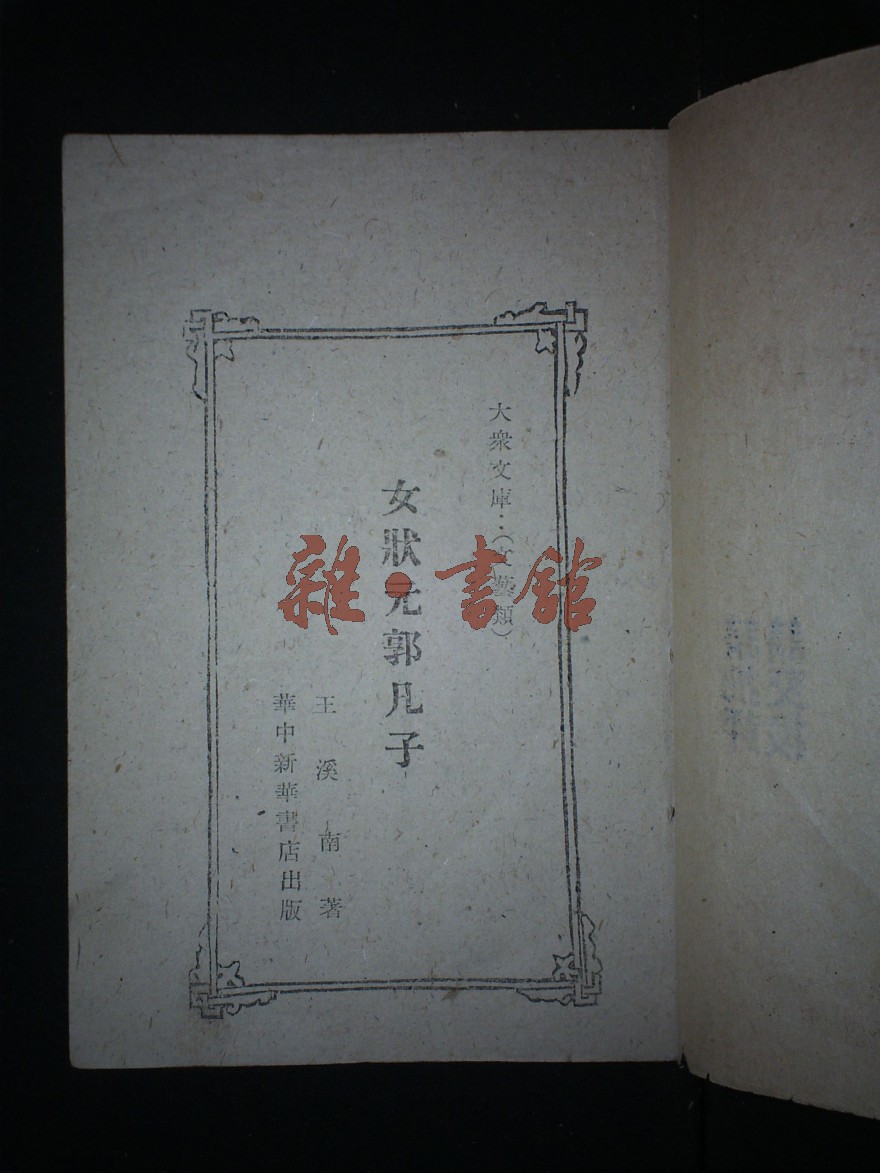 大衆文庫：（文藝類）
女狀元郭凡子
王溪南著
華中新華書店出版
雜·書館